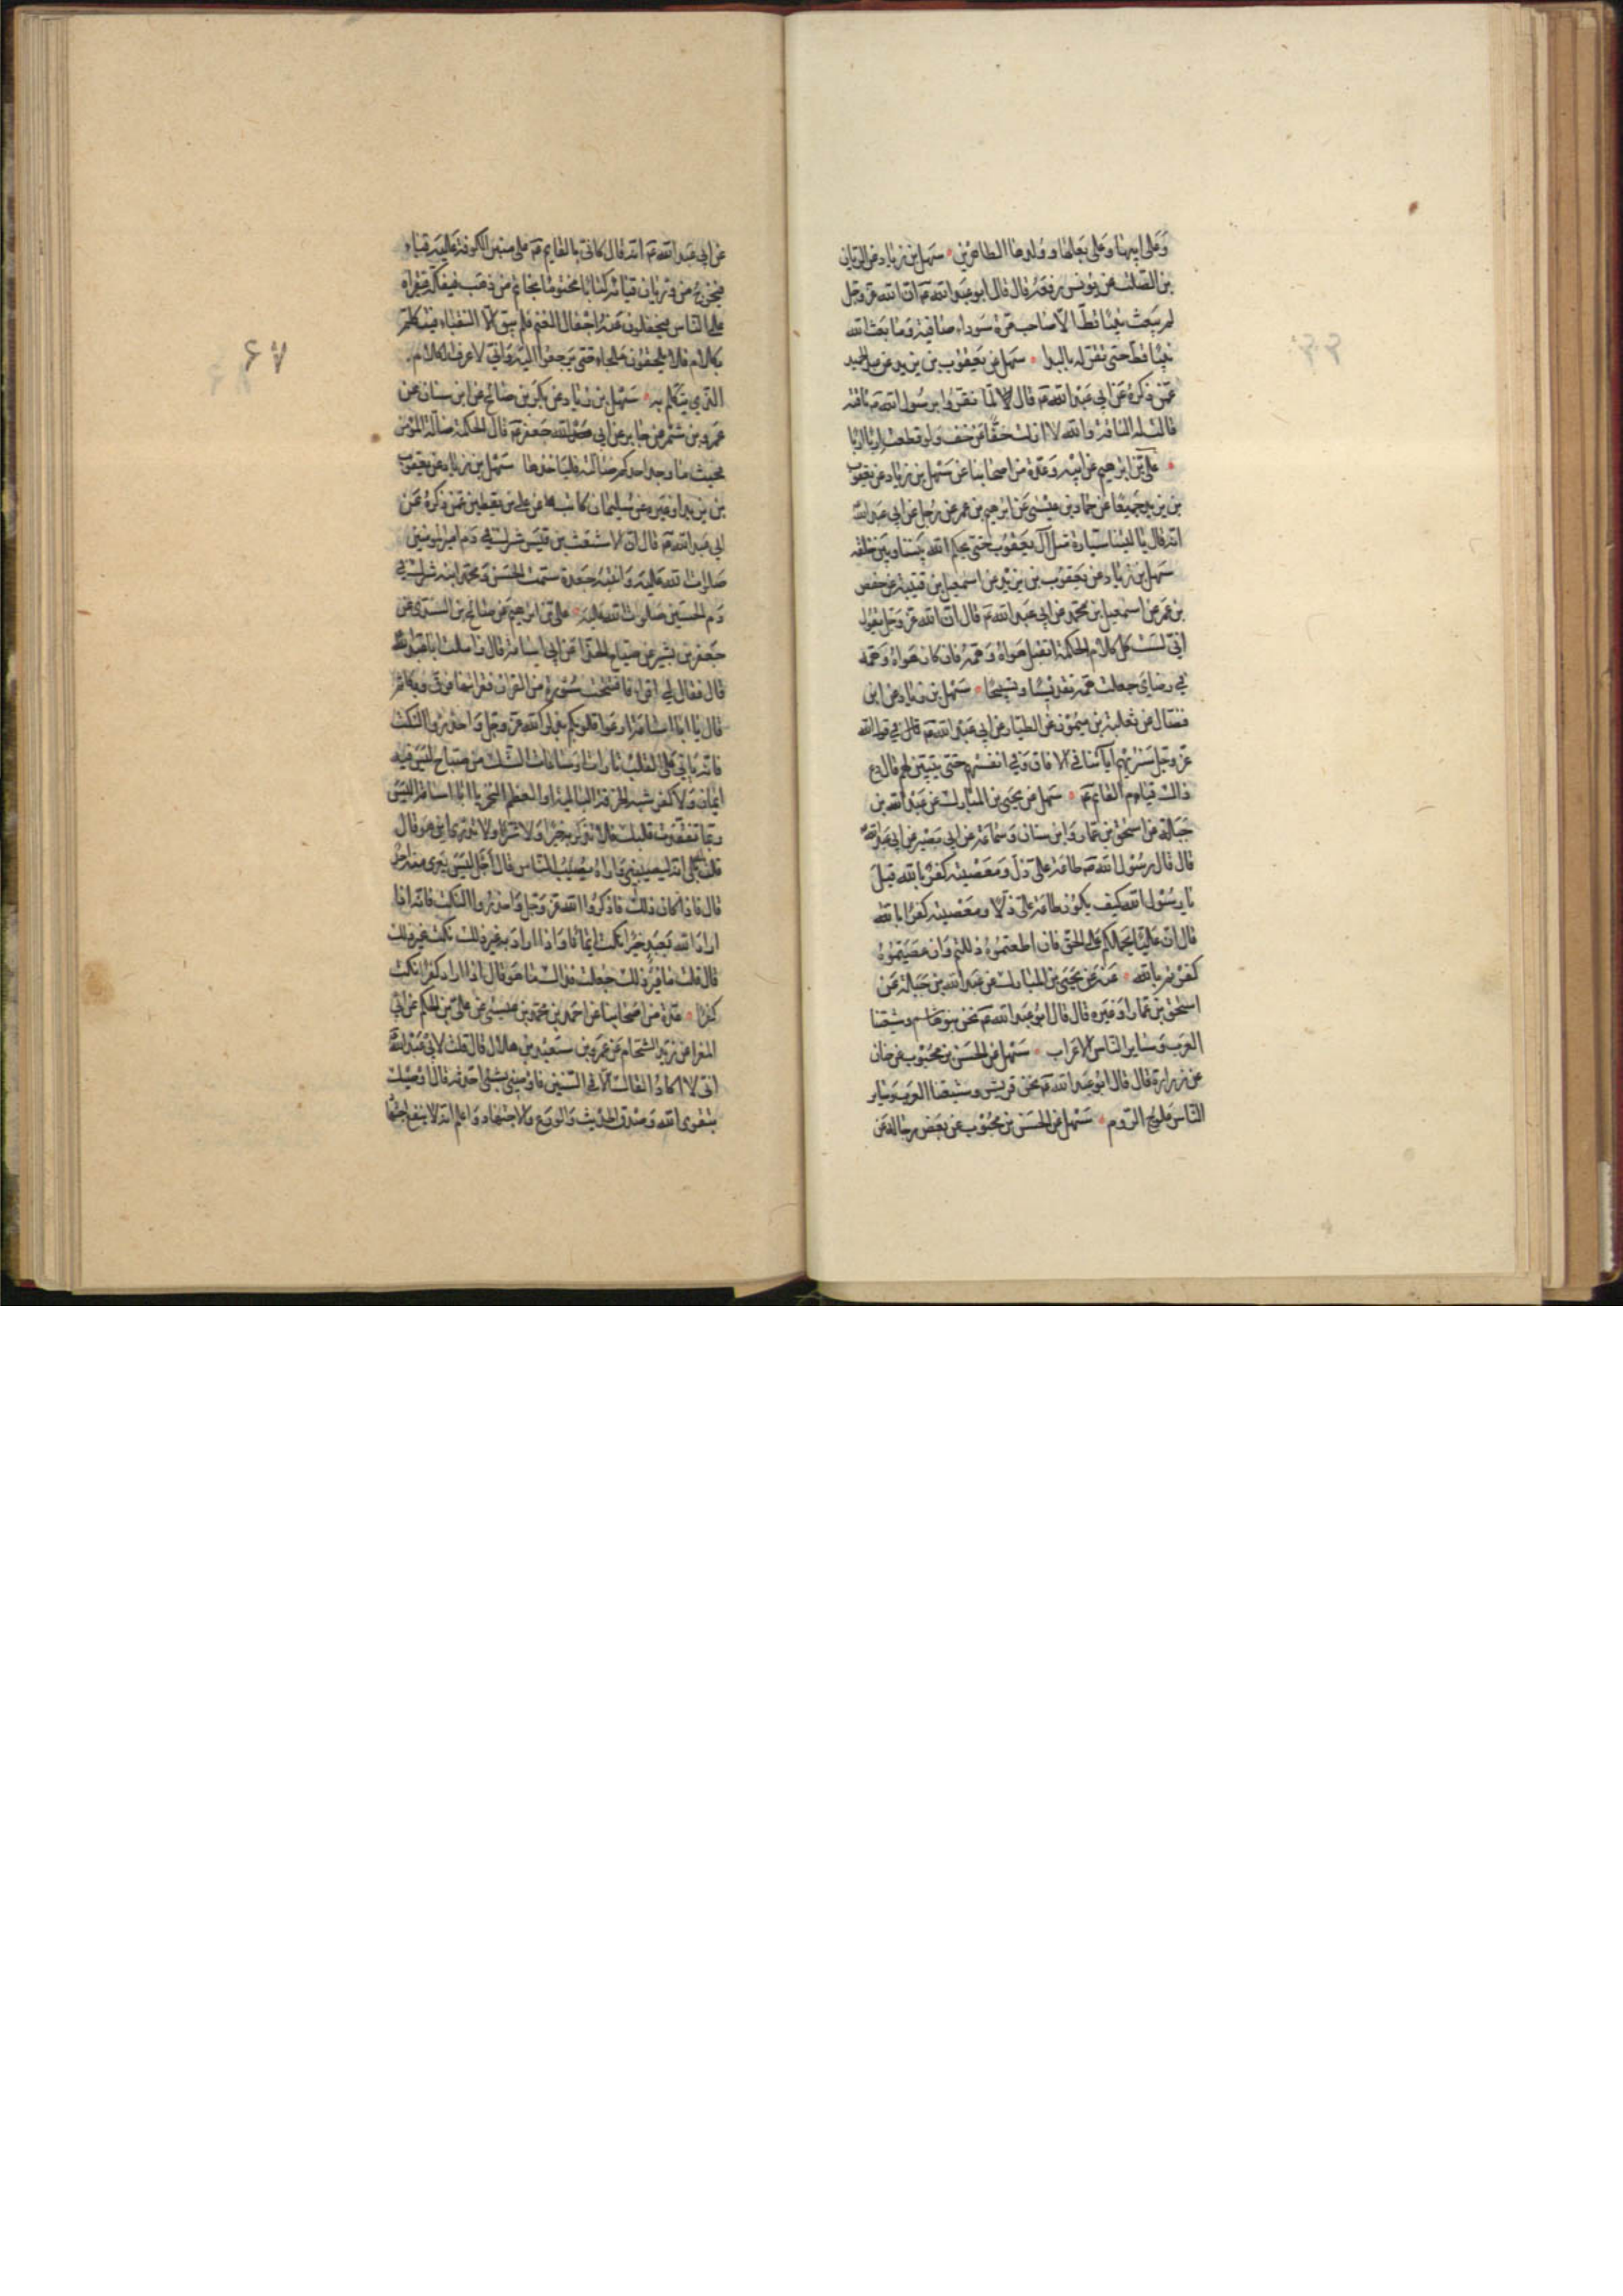 وعلى ابيها وعلى بعلها وولدها الطاهرين سهل بن زياد عن الريان
بن الصلت عن يونس رفعه قال قال ابو عبد الله ع ان الله عز وجل
لم يبعث نبيا قط الا صاحب مرة سوداء صافية وما بعث الله
نبيا قط حتى يقر له بالبدا سهل عن يعقوب بن يزيد عن عبد الحميد
عمن ذكره عن ابي عبد الله ع قال لما نفروا برسول الله ص ناقته
قالت له الناقة والله لا ازلت خفا عن خف ولو قطعت اربا اربا
علي بن ابرهيم عن ابيه وعدة من اصحابنا عن سهل بن زياد عن يعقوب
بن يزيد جميعا عن حماد بن عيسى عن ابرهيم بن عمر عن رجل عن ابي عبد الله
انه قال يا ليتنا سيارة مثل آل يعقوب حتى يحكم الله بيننا وبين خلقه
سهل بن زياد عن يعقوب بن يزيد عن اسمعيل بن قتيبة عن حفص
بن عمر عن اسمعيل بن محمد عن ابي عبد الله ع قال ان الله عز وجل يقول
اني لست كل كلام الحكمة اتقبل هواه وهمه فان كان هواه وهمه
في رضاي جعلت همه تقديسا وتسبيحا سهل بن زياد عن ابن
فضال عن ثعلبة بن ميمون عن الطيار عن ابي عبد الله ع قال في قول الله
عز وجل سنريهم آياتنا في الافاق وفي انفسهم حتى يتبين لهم قال دع
ذاك قيام القايم ع سهل عن يحيى بن المبارك عن عبد الله بن
جبلة عن اسحق بن عمار وابن سنان وسماعة عن ابي بصير عن ابي عبد الله
قال قال رسول الله ص طاعة علي ذل ومعصيته كفر بالله قيل
يا رسول الله كيف يكون طاعة علي ذلا ومعصيته كفرا بالله
قال ان عليا يحملكم على الحق فان اطعتموه ذللتم وان عصيتموه
كفرتم بالله عنه عن يحيى بن المبارك عن عبد الله بن جبلة عن
اسحق بن عمار او غيره قال قال ابو عبد الله ع نحن بنو هاشم وشيعتنا
العرب وساير الناس الاعراب سهل عن الحسن بن محبوب عن حنان
عن زرارة قال قال ابو عبد الله ع نحن قريش وشيعتنا العرب وساير
الناس علوج الروم سهل عن الحسن بن محبوب عن بعض رجاله عن
۶۷
عن ابي عبد الله ع انه قال كاني بالقايم ع على منبر الكوفة عليه قباء
فيخرج من وريان قبائه كتابا مختوما بخاتم من ذهب فيفكه فيقرأه
على الناس فيجفلون عنه اجفال الغنم فلم يبق الا النقباء فيتكلم
بكلام فلا يلحقون ملجاء حتى يرجعوا اليه واني لاعرف الكلام
الذي يتكلم به سهل بن زياد عن بكر بن صالح عن ابن سنان عن
عمرو بن شمر عن جابر عن ابي جعفر ع قال الحكمة ضالة المؤمن
فحيث ما وجد احدكم ضالته فلياخذها سهل بن زياد عن يعقوب
بن يزيد او غيره عن سليمان كاتب علي بن يقطين عمن ذكره عن
ابي عبد الله ع قال ان الاشعث بن قيس شرك في دم امير المؤمنين
صلوات الله عليه وابنته جعدة سمت الحسن ومحمد ابنه شرك في
دم الحسين صلوات الله عليه علي بن ابرهيم عن صالح بن السندي عن
جعفر بن بشير عن صباح الحذا عن ابي اسامة قال زاملت ابا عبد الله
قال فقال لي اقرا فافتتحت سورة من القران فقراتها فرق وبكا ثم
قال يا ابا اسامة ارعوا قلوبكم بذكر الله عز وجل واحذروا النكت
فانه ياتي على القلب تارات او ساعات الشك من صباح ليس فيه
ايمان ولا كفر شبه الخرقة البالية او العظم النخر يا ابا اسامة اليس
ربما تفقدت قلبك فلا تذكر به خيرا ولا شرا ولا تدري اين هو قال
قلت بلى انه ليصيبني واراه يصيب الناس قال اجل ليس يعرى منه احد
قال فاذا كان ذلك فاذكروا الله عز وجل واحذروا النكت فانه اذا
اراد الله بعبد خيرا نكت ايمانا واذا اراد به غير ذلك نكت غير ذلك
قال قلت ما غير ذلك جعلت فداك ما هو قال اذا اراد كفرا نكت
كفرا عدة من اصحابنا عن احمد بن محمد بن عيسى عن علي بن الحكم عن ابي
المغرا عن زيد الشحام عن عمرو بن سعيد بن هلال قال قلت لابي عبد الله
اني لا اكاد القاك الا في السنين فاوصني بشئ اخذ به قال اوصيك
بتقوى الله وصدق الحديث والورع والاجتهاد واعلم انه لا ينفع اجتهاد